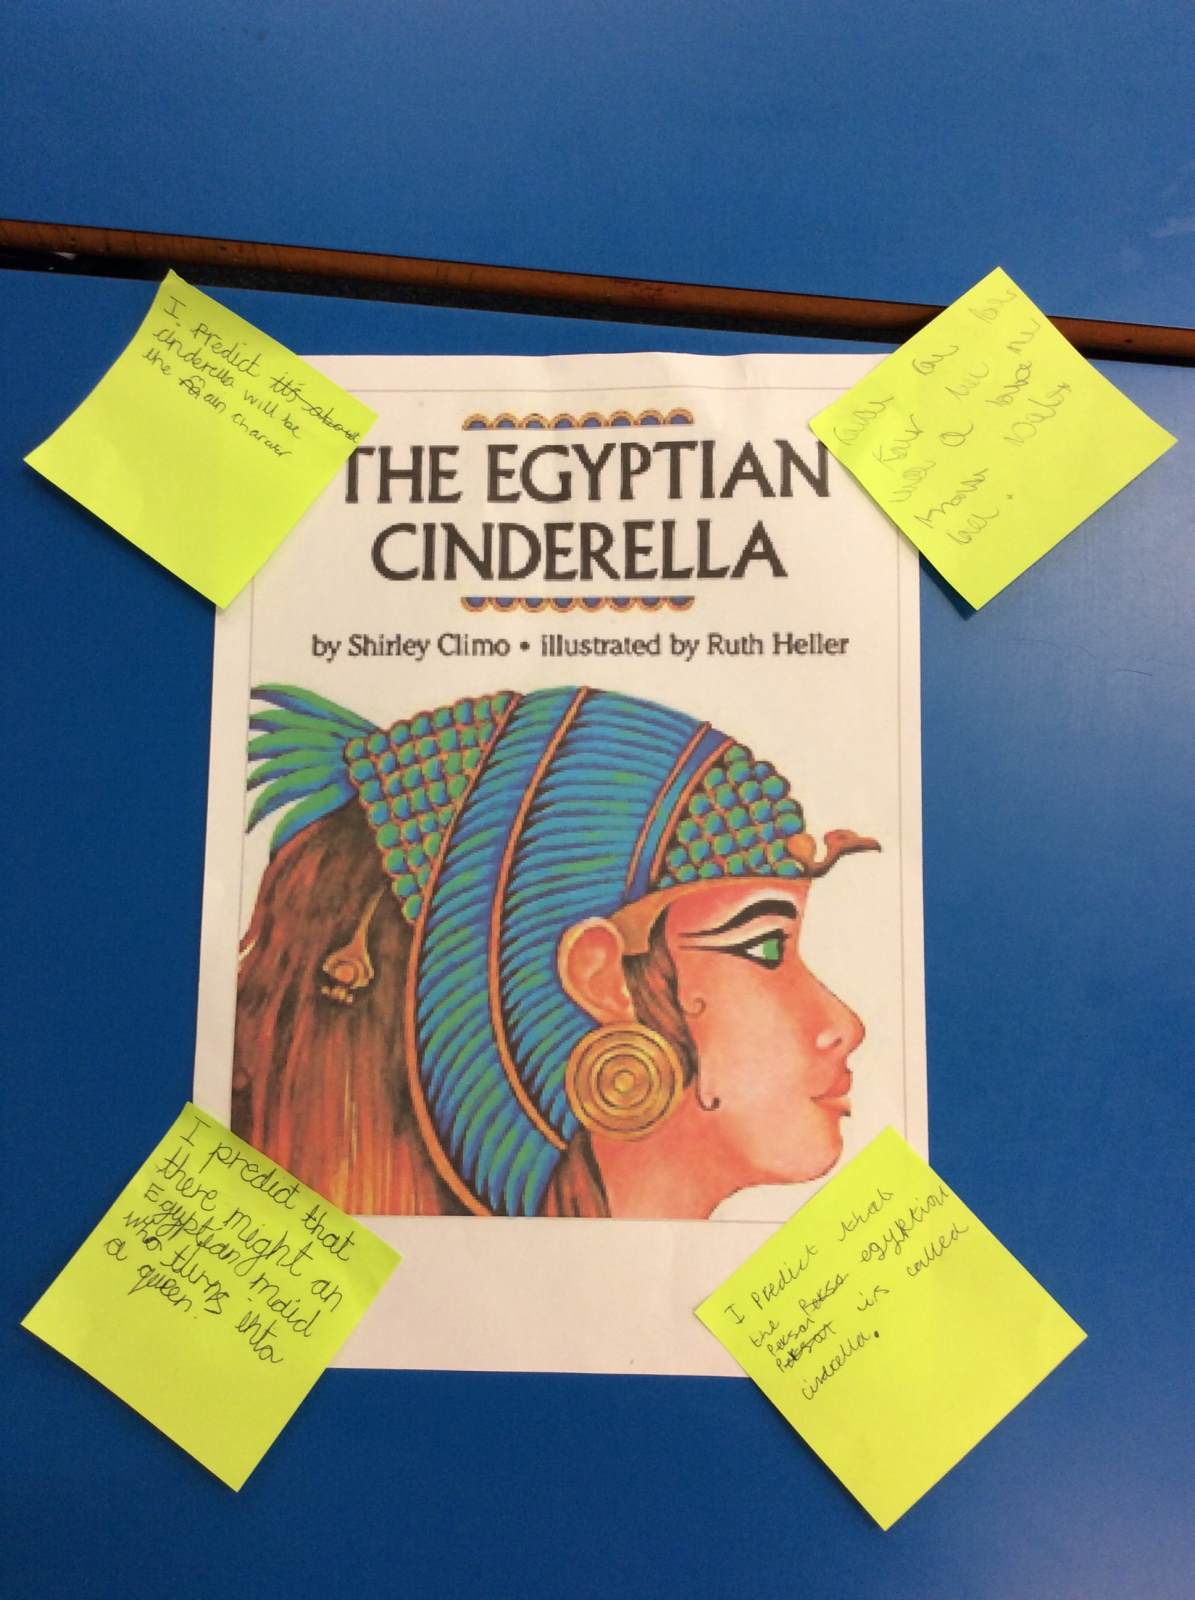 I predict it's about
cinderella will be
the main charcter
THE EGYPTIAN
CINDERELLA
by Shirley Climo • illustrated by Ruth Heller
I predict that
there might an
Egyptian maid
who turns into
a queen.
I predict that
the egyption
Persoi is called
cinderella.